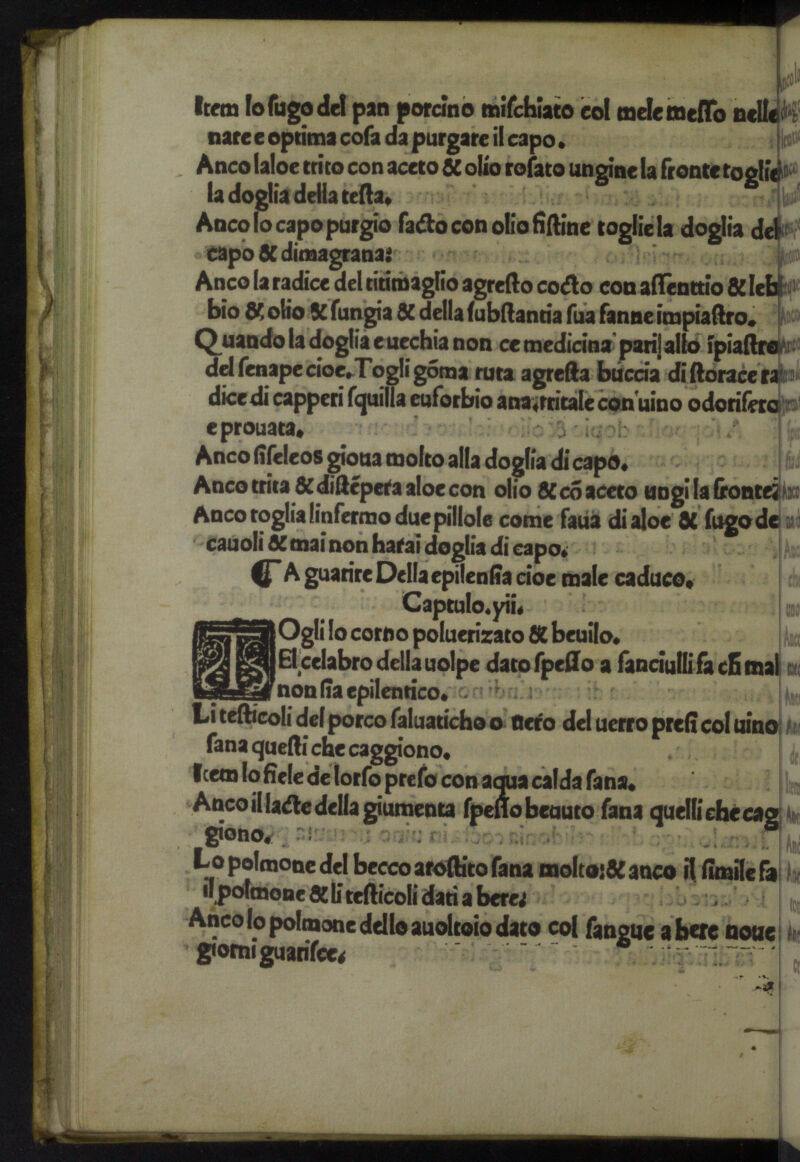 Item lo ſugo del pan porcino miſchiato col mele meſſo nelle
nare e optima coſa da purgare il capo.
Anco laloe trito con aceto & olio roſato ungine la fronte toglie
la doglia della teſta.
Anco lo capo purgio facto con olio ſiſtine toglie la doglia del
capo & dimagrana:
Anco la radice del titimaglio agreſto cocto con aſſenttio & leb
bio & olio & ſungia & della ſubſtantia ſua fanne impiaſtro.
Quando la doglia e uechia non ce medicina pari allo ĩpiaſtro
del ſenape cioe. Togli gõma ruta agreſta buccia di ſtorace ra
dice di capperi ſquilla euforbio ana. tritale con uino odorifero
e prouata.
Anco ſiſeleos gioua molto alla doglia di capo.
Anco trita & diſtẽpera aloe con olio & cõ aceto ungi la fronte:
Anco toglia linfermo due pillole come faua di aloe & ſugo de
cauoli & mai non harai doglia di capo.
¶ A guarire Della epilenſia cioe male caduco.
Captulo. yii.
TOgli lo corno poluerizato & beuilo.
El celabro della uolpe dato ſpeſſo a fanciulli fa cħ mal
non ſia epilentico.
Li teſticoli del porco ſaluaticho o uero del uerro preſi col uino
ſana queſti che caggiono.
Item lo fiele de lorſo preſo con aqua calda ſana.
Anco il lacte della giumenta ſpeſſo beuuto ſana quelli che cag
giono.
Lo polmone del becco aroſtito ſana molto: & anco il ſimile fa
il polmone & li teſticoli dati a bere.
Anco lo polmone dello auoltoio dato col ſangue a bere noue
giorni guariſce.